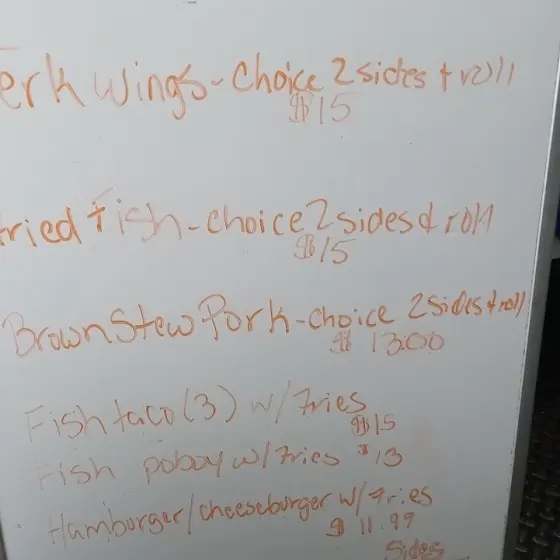 erk wings - Choice 2 sides + roll
$15
fried fish - choice 2 sides & roll
$15
Brown Stew Pork - choice 2 sides + roll
$ 13.00
Fish taco (3) w/ Fries
$15
Fish poboy w/ Fries $13
Hamburger/cheeseburger w/ Fries
$ 11.99
Sides